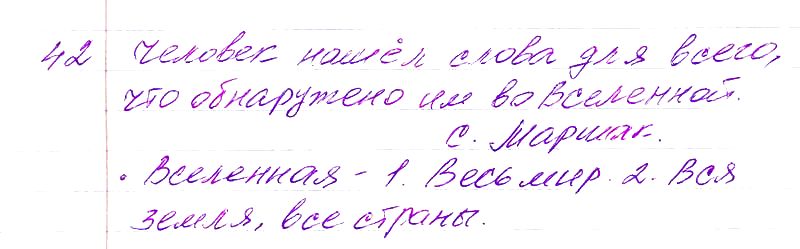 42 Человек нашёл слова для всего,
что обнаружено им во Вселенной.
С. Маршак.
• Вселенная - 1. Весь мир. 2. Вся
земля, все страны.